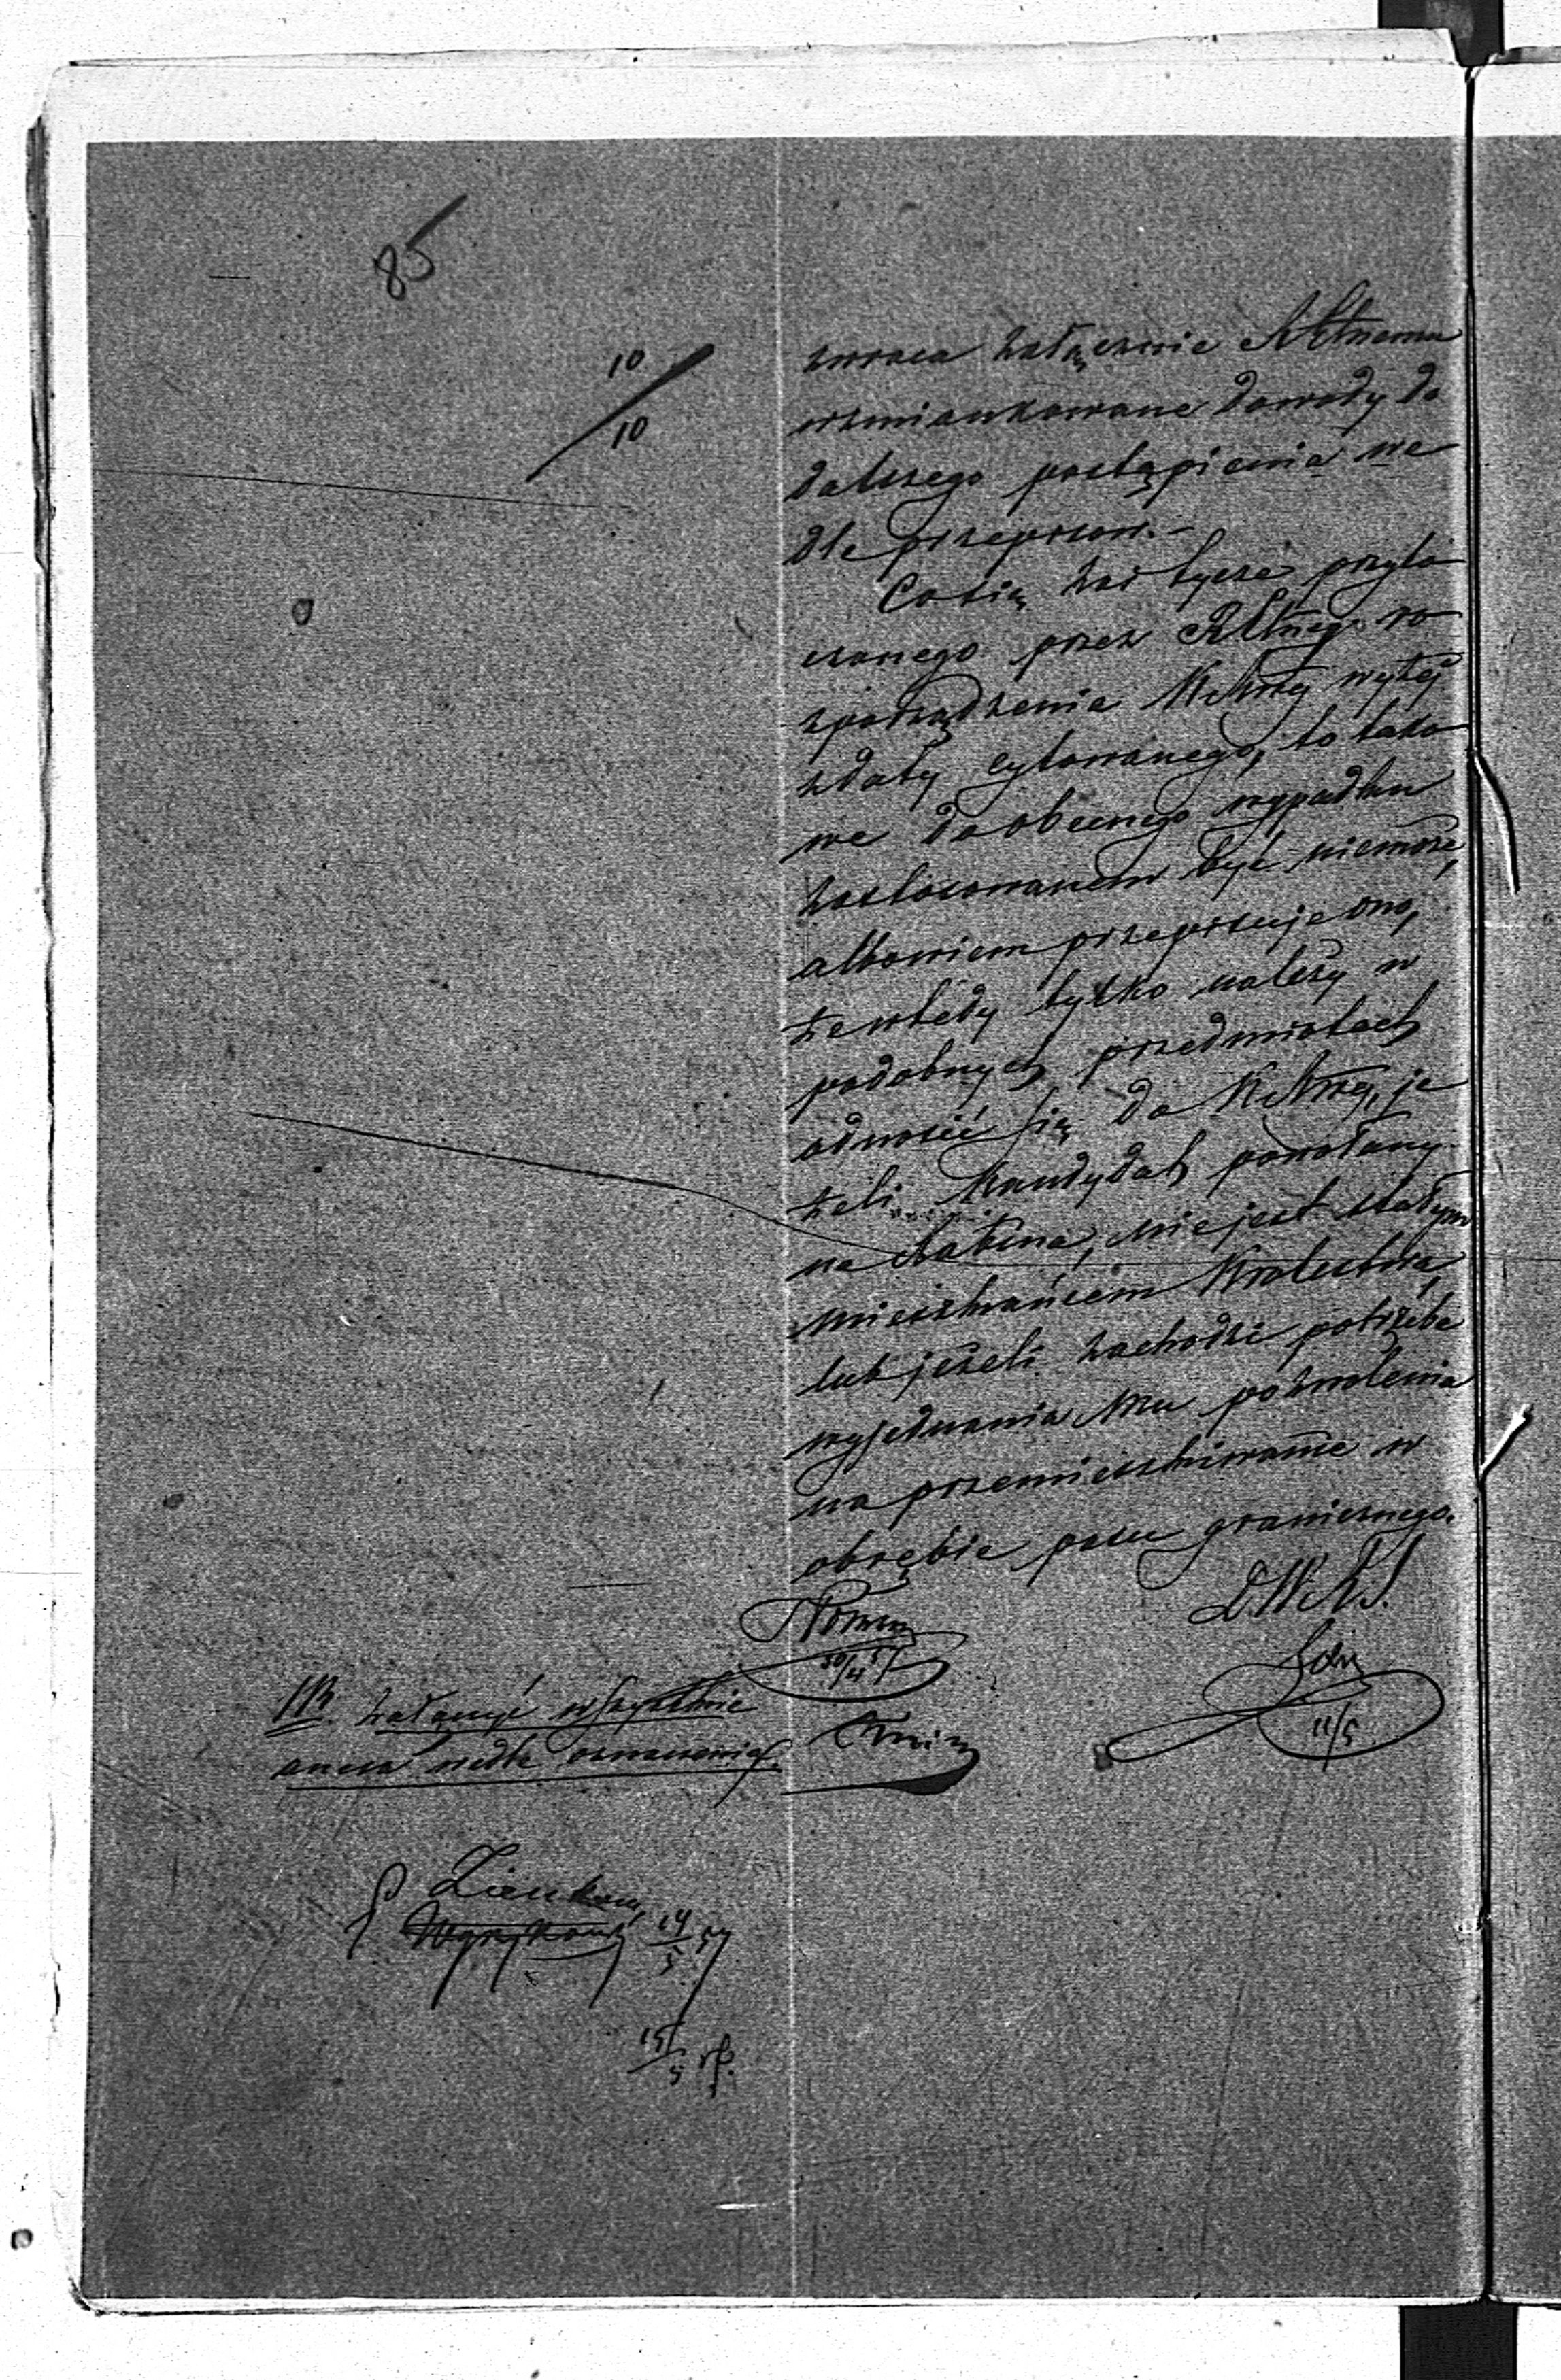 85
10
10
zwraca załącznie
wzmiankowane dowody do
dalszego postąpienia we
dle przepisów.-
Cosię zaś tycze przyto
czonego przez Rząd
zporządzenia wyżej
zdaty cytowanego, to tako
we do obecnego wypadku
zastosowanem być niemoże,
albowiem przepisuje ono,
że wtedy tylko należy w
podobnych przedmiotach
odnosić się do je
żeli Kandydat powołany
na Rabina, nie jest stałym
mieszkańcem Królestwa,
lub jeżeli zachodzi potrzeba
wyjednania Mu pozwolenia
na przemieszkiwanie w
obrębie pasu granicznego.
D.W.
30/4 57
11/5
NB. załączyć wszystkie
anexa wedle oznaczenia
14/5 57
15/5